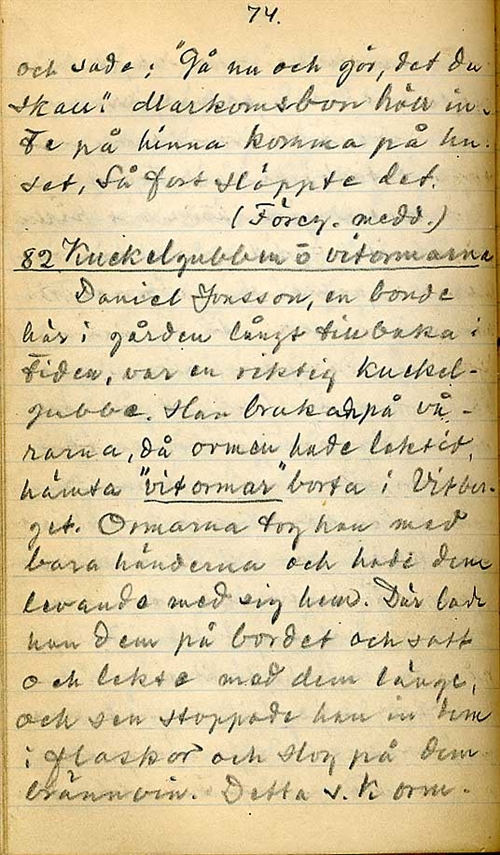 74.
och sade: "Gå nu och gör, det du
skall". Markomsbon höll in-
te på hinna komma på hu-
set, så fort släppte det.
(Föreg. medd.)
82 Kuckelgubben o vitormarna
Daniel Jonsson, en bonde
här i gården långt tillbaka i
tiden, var en riktig kuckel-
gubbe. Han brukade på vå-
rarna, då ormen hade lektid,
hämta "vitormar" borta i Vitber-
get. Ormarna tog han med
bara händerna och hade dem
levande med sig hem. Där lade
han dem på bordet och satt
och lekte med dem länge,
och sen stoppade han in dem
i flaskor och slog på dem
brännvin. Detta s. k orm-